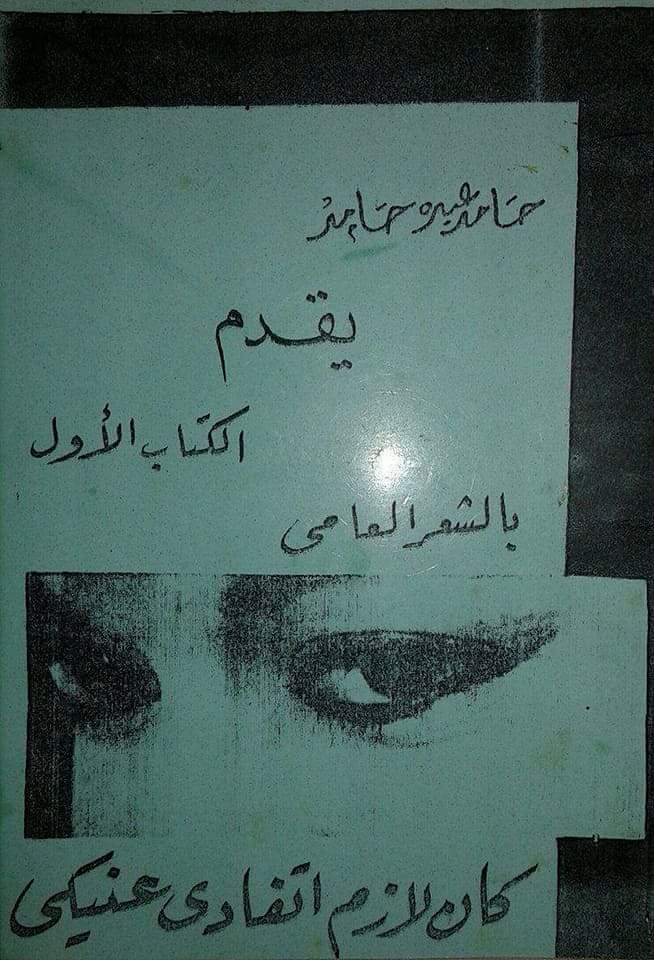 حامد عبده حامد
يقدم
الكتاب الأول
بالشعر العامى
كان لازم اتفادى عنيكى